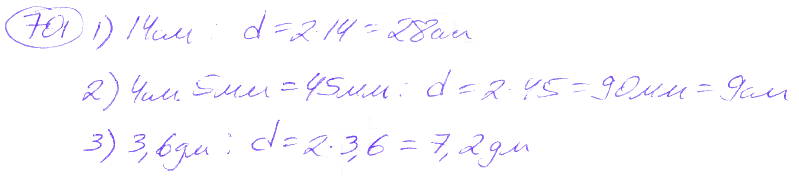 701 1) 14см : d = 2·14 = 28см
2) 4см 5мм = 45мм : d = 2·45 = 90мм = 9см
3) 3,6дм : d = 2·3,6 = 7,2дм